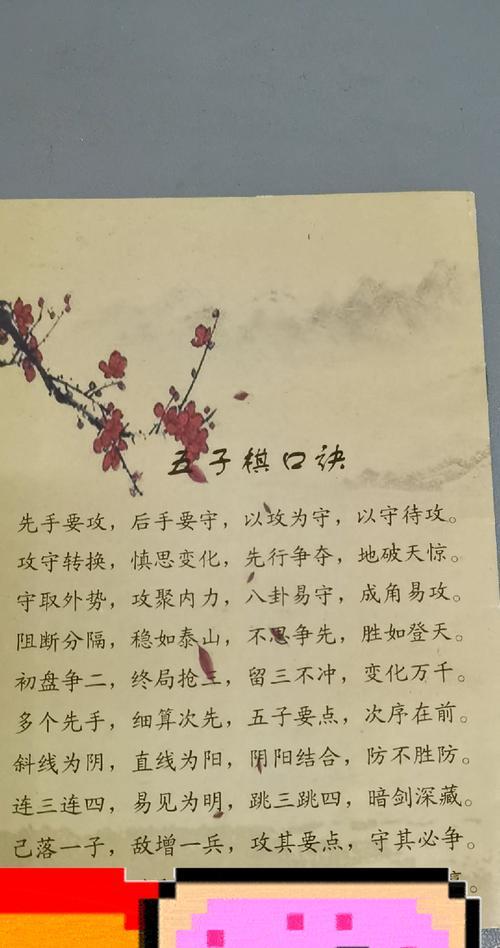 五子棋口诀
先手要攻，后手要守，以攻为守，以守待攻。
攻守转换，慎思变化，先行争夺，地破天惊。
守取外势，攻聚内力，八卦易守，成角易攻。
阻断分隔，稳如泰山，不思争先，胜如登天。
初盘争二，终局抢三，留三不冲，变化万千。
多个先手，细算次先，五子要点，次序在前。
斜线为阴，直线为阳，阴阳结合，防不胜防。
连三连四，易见为明，跳三跳四，暗剑深藏。
己落一子，敌增一兵，攻其要点，守其必争。